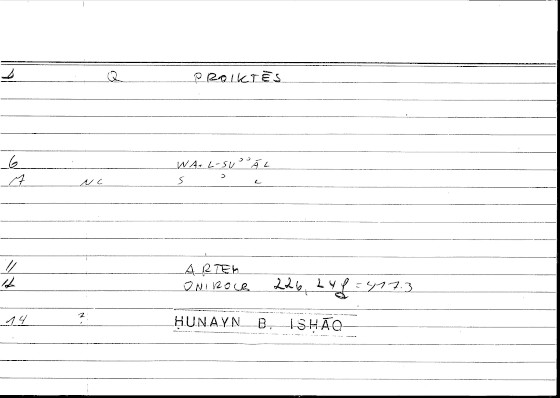 1 Q PROIKTĒS
6 WA-L-SUʾʾĀL
17 NC S ʾ L
11 ARTEM
12 ONIROCR 226, 24f = 417.3
14 ? ḤUNAYN B. ISḤĀQ